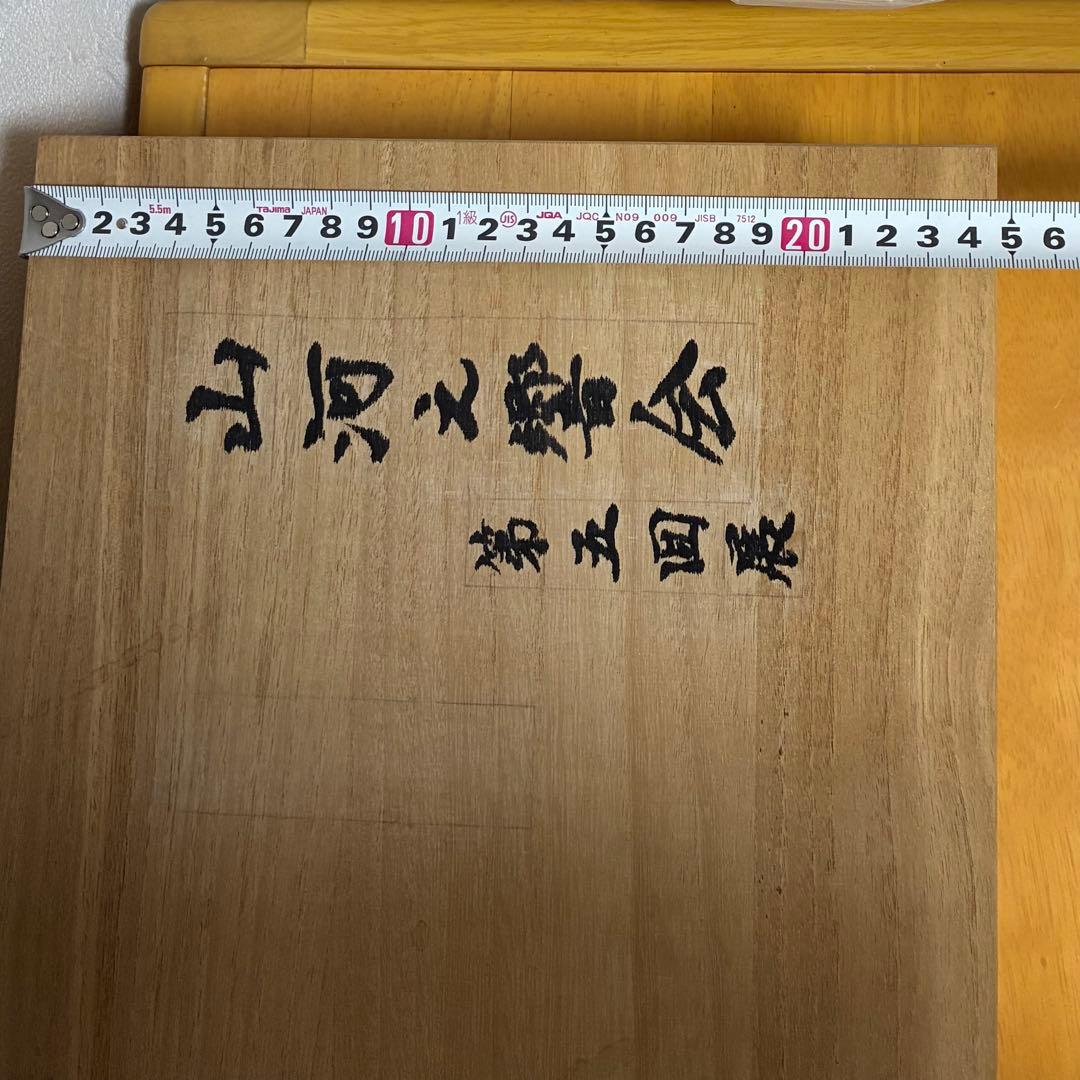 5.5m Tajima JAPAN 1級 JIS JQA JQC N09 009 JISB 7512
2 3 4 5 6 7 8 9 10 1 2 3 4 5 6 7 8 9 20 1 2 3 4 5 6
山河之響会
第五回展